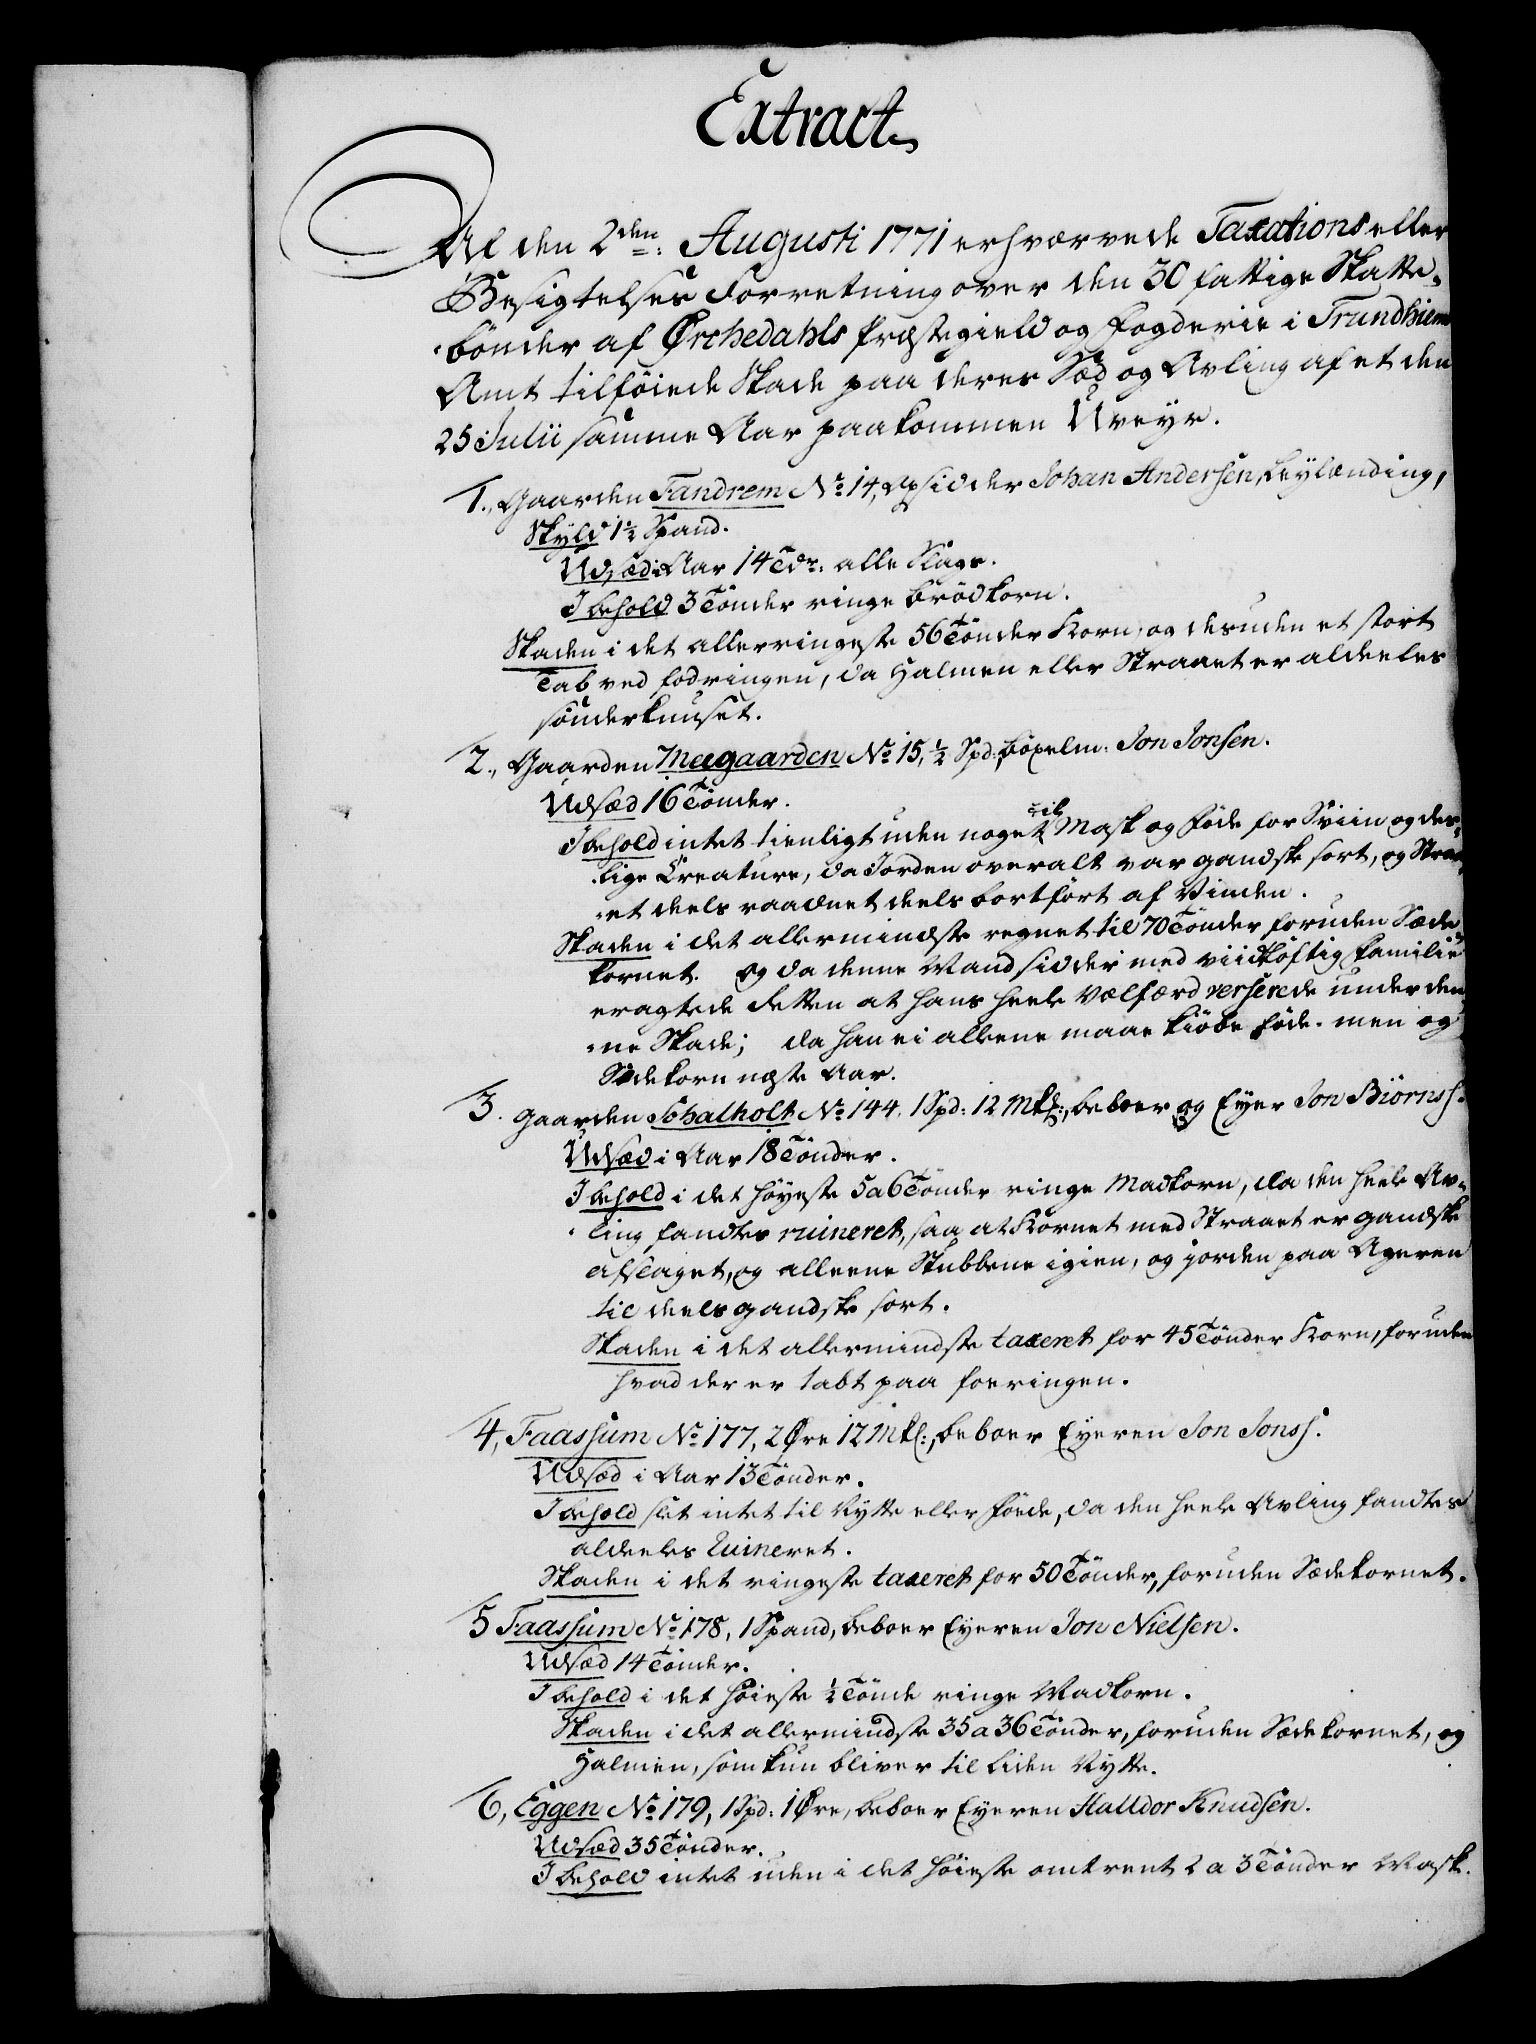 Extract
Af den 2den: Augusti 1771 erhværvede Taxations eller
Besigtelses Forretning over den 30 fattige Skatte-
bönder af Ørchedahls Præstegield og Fogderie i Trundhiems
Amt tilföiede Skade paa deres Sæd og Avling af et den
25 Julii samme Aar paakommen Uveyr.
1., Gaarden Fandrem No 14, Opsidder Johan Andersen, Leylænding,
Skyld 1½ Spand.
Udsæd i Aar 14 Tdr: alle Slags.
I behold 3 Tönder ringe brödkorn.
Skaden i det allerringeste 56 Tönder Korn, og desuden et stort
Tab ved fodringen, da Halmen eller Straaet er aldeeles
sönderknuset.
2., Gaarden Meegaarden No 15, ½ Spd: boxelm: Jon Jonsen.
Udsæd 16 Tönder.
I behold intet tienligt uden noget til Mask og Föde for Sviin og des-
lige Creature, da Jorden overalt var gandske sort, og Straa-
et deels raadnet deels bortfört af Vinden.
Skaden i det allermindste regnet til 70 Tönder foruden Sæde
kornet. og da denne Mand sidder med viidtlöftig Familie
eragtede Retten at hans heele Velfærd verserede under den-
ne Skade; da han ei alleene maae kiöbe Föde. men og
Sædekorn næste Aar.
3. Gaarden Schalholt No 144. 1 Spd: 12 Mkl:, beboer og Eyer Jon Biörnss:
Udsæd i Aar 18 Tönder.
I behold i det höyeste 5 a 6 Tönder ringe Madkorn, da den heele Av-
ling fandtes ruineret, saa at Kornet med Straaet er gandske
afslaget, og alleene Stubbene igien, og jorden paa Ageren
til deels gandske sort.
Skaden i det allermindste taxeret for 45 Tönder Korn, foruden
hvad der er tabt paa foeringen.
4, Faassum No 177, 2 Øre 12 Mkl:, beboer Eyeren Jon Jonss.
Udsæd i Aar 13 Tönder.
I behold slet intet til Nytte eller Föede, da den heele Avling fandtes
aldeeles Ruineret.
Skaden i det ringeste taxeret for 50 Tönder, foruden Sædekornet.
5 Faassum No 178, 1 Spand, beboer Eyeren Jon Nielsen.
Udsæd 14 Tönder.
I behold i det höieste ½ Tönde ringe Madkorn.
Skaden i det allermindste 35 a 36 Tönder, foruden Sædekornet, og
Halmen, som kun bliver til liden Nytte.
6, Eggen No 179, 1 Spd: 1 Øre, beboer Eyeren Halldor Knudsen.
Udsæd 35 Tönder.
I behold intet uden i det höieste omtrent 2 a 3 Tönder Mask.